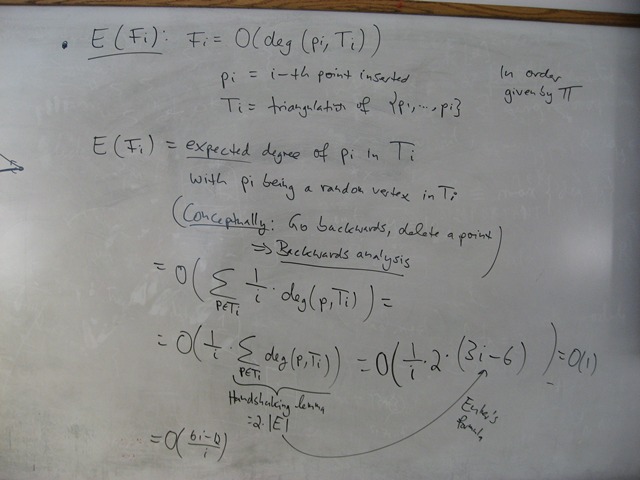 • E(Fi): Fi = O(deg(pi, Ti))
pi = i-th point inserted
In order given by π
Ti = triangulation of {p1, ..., pi}
E(Fi) = expected degree of pi in Ti
with pi being a random vertex in Ti
(Conceptually: Go backwards, delete a point
⇒ Backwards analysis)
= O(∑_{p∈Ti} 1/i · deg(p, Ti)) =
= O(1/i · ∑_{p∈Ti} deg(p, Ti)) = O(1/i · 2 · (3i-6)) = O(1)
Handshaking lemma
= 2·|E|
Euler's formula
= O((6i-12)/i)